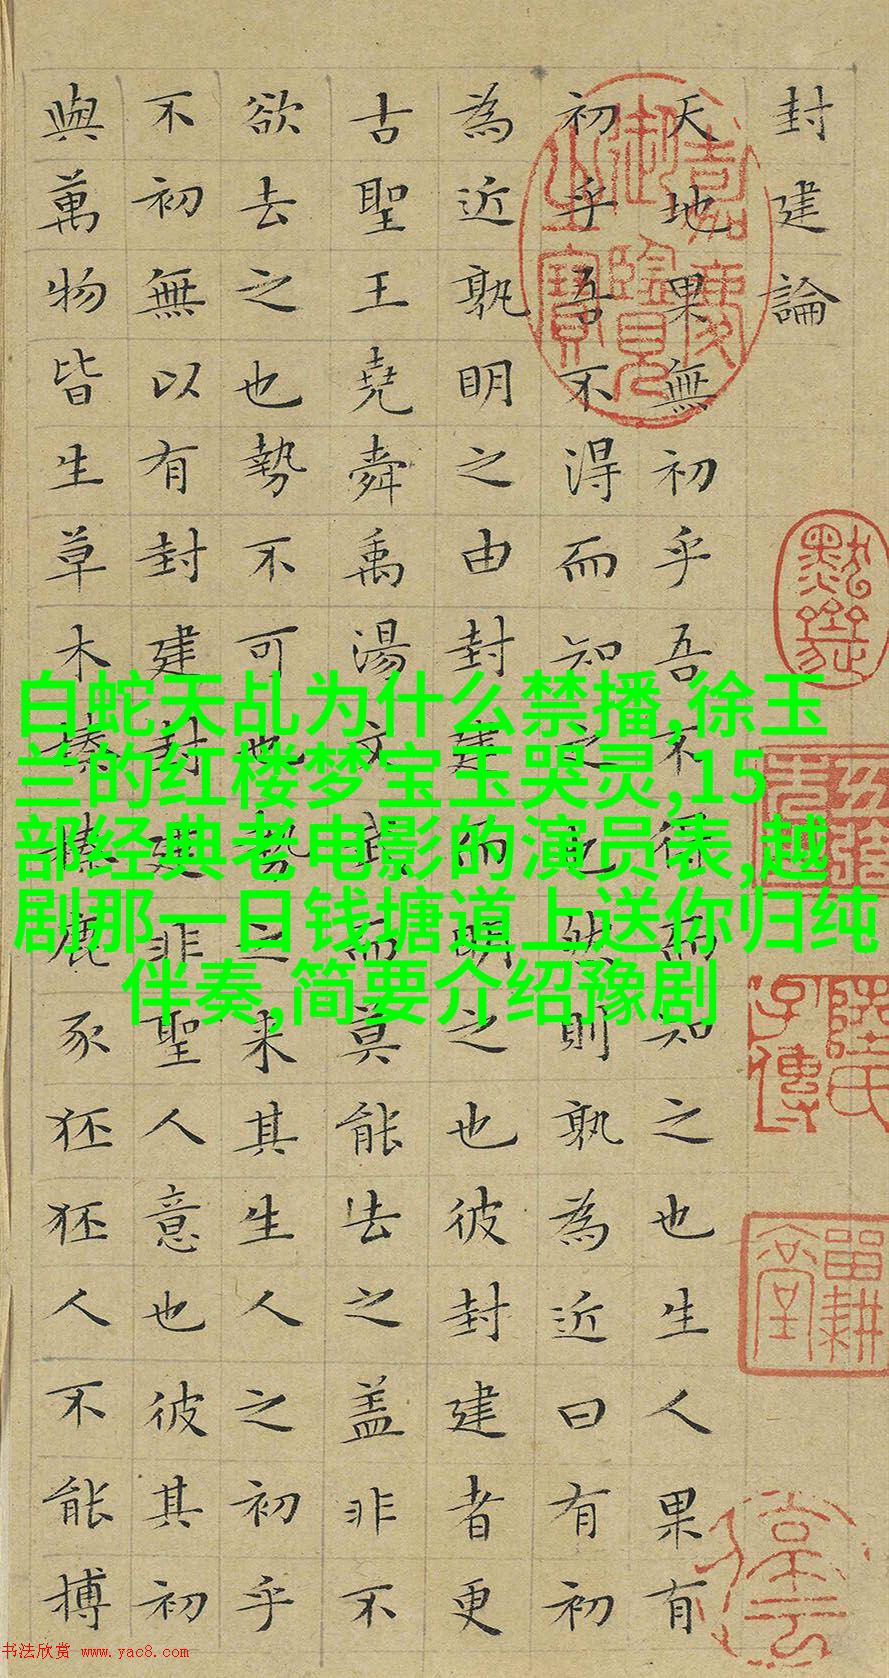 封建論
天地果無初乎吾不得而知之也生人果有
初乎吾不得而知之也然則孰為近曰有初
為近孰明之由封建而明之也彼封建者更
古聖王堯舜禹湯文武而莫能去之盖非不
欲去之也勢不可也勢之来其生人之初乎
不初無以有封建封建非聖人意也彼其初
與萬物皆生草木榛榛鹿豕狉狉人不能搏
嘉慶御覽之寶
白蛇天乩为什么禁播,徐玉
兰的红楼梦宝玉哭灵,15
部经典老电影的演员表,越
剧那一日钱塘道上送你归纯
伴奏,简要介绍豫剧
书法欣赏 www.yac8.com